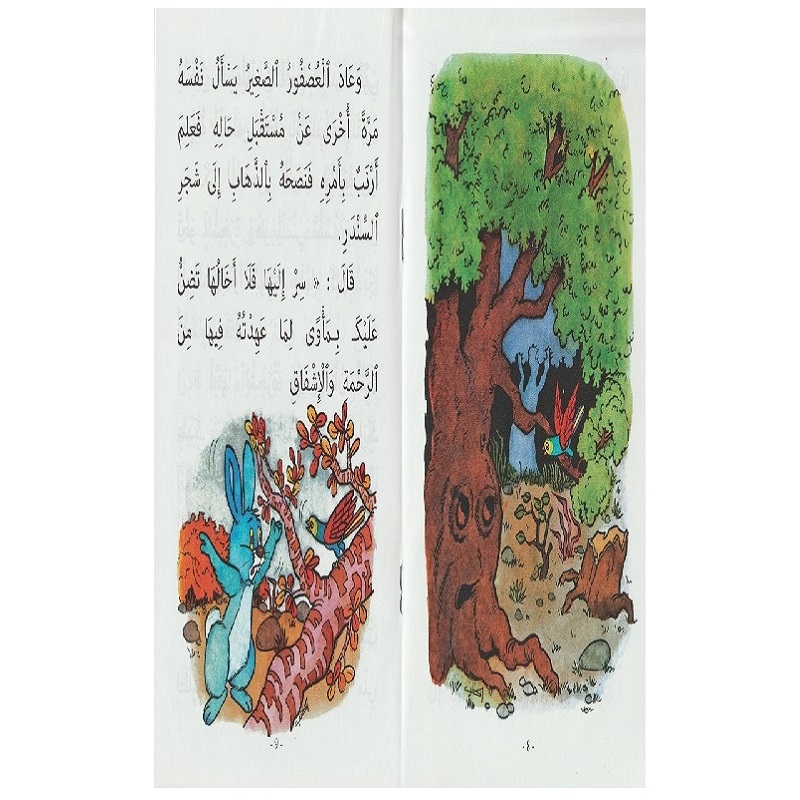 وَعَادَ ٱلْعُصْفُورُ ٱلصَّغِيرُ يَسْأَلُ نَفْسَهُ
مَرَّةً أُخْرَى عَنْ مُسْتَقْبَلِ حَالِهِ فَعَلِمَ
أَرْنَبٌ بِأَمْرِهِ فَنَصَحَهُ بِٱلذَّهَابِ إِلَى شَجَرِ
ٱلسُّنْدَرِ.
قَالَ : « سِرْ إِلَيْهَا فَلَا أَخَالُهَا تَضِنُّ
عَلَيْكَ بِمَأْوًى لِمَا عَهِدْتُهُ فِيهَا مِنَ
ٱلرَّحْمَةِ وَٱلْإِشْفَاقِ
-٤-
-9-